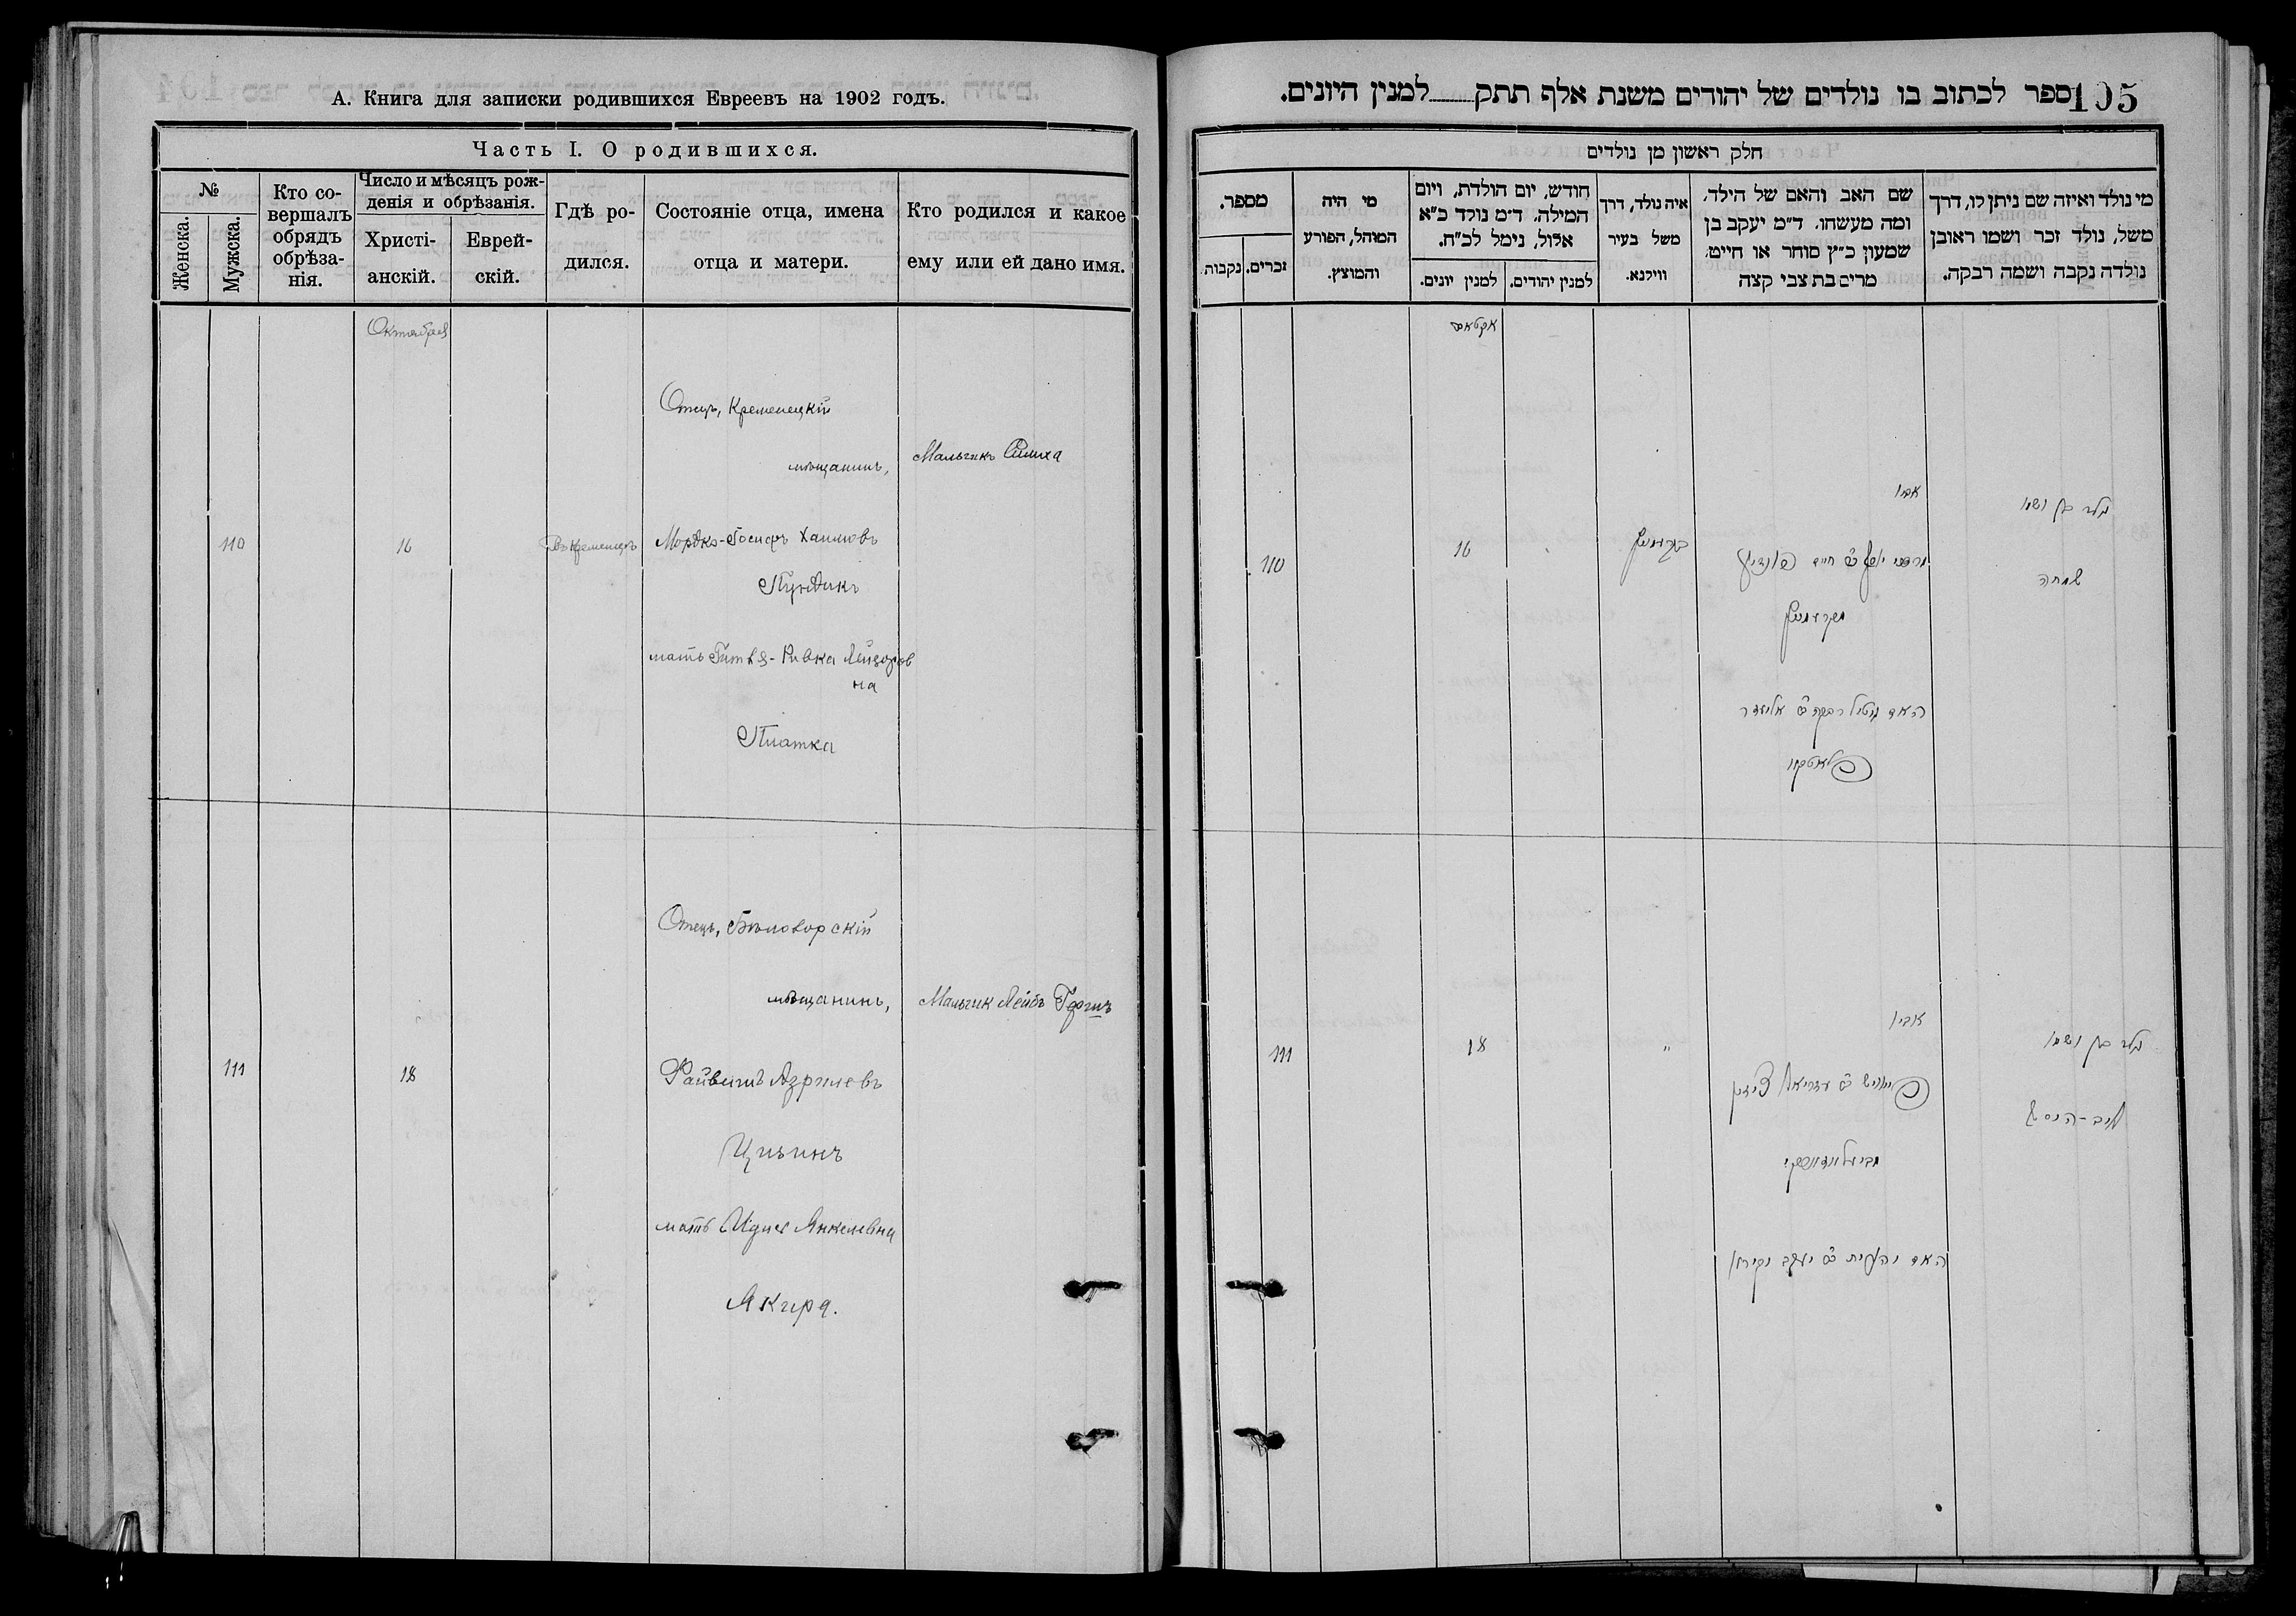 А. Книга для записки родившихся Евреевъ на 1902 годъ.
Часть I. О родившихся.
№
Женска.
Мужска.
Кто со-
вершалъ
обрядъ
обрѣза-
нія.
Число и мѣсяцъ рож-
денія и обрѣзанія.
Христі-
анскій.
Еврей-
скій.
Гдѣ ро-
дился.
Состояніе отца, имена
отца и матери.
Кто родился и какое
ему или ей дано имя.
Октября
110
16
Въ Кременцѣ
Отецъ, Кременецкій
мѣщанинъ,
Мордко-Іосифъ Хаимовъ
Пундикъ
мать Гитля-Ривка Лейзоров
на
Платка
Мальчикъ Симха
111
18
Отецъ,
мѣщанинъ,
Файвишъ Азрилевъ
мать Янкелевна
Якира.
Мальчик Лейбъ
105
ספר לכתוב בו נולדים של יהודים משנת אלף תתק למנין היונים.
חלק ראשון מן נולדים
מספר.
נקבות.
זכרים.
מי היה
המוהל, הפורע
והמוצץ.
חודש, יום הולדת, ויום
המילה. ד״מ נולד כ״א
אלול, נימל לכ״ח.
למנין יונים.
למנין יהודים.
איה נולד, דרך
משל בעיר
ווילנא.
שם האב והאם של הילד,
ומה מעשהו. ד״מ יעקב בן
שמעון כ״ץ סוחר או חייט,
מרים בת צבי קצה
מי נולד ואיזה שם ניתן לו, דרך
משל, נולד זכר ושמו ראובן
נולדה נקבה ושמה רבקה.
110
16
אביו
מרדכי יוסף ב חיים
האם גיטיל רבקה ב אליעזר
נולד בן ושמו
שמחה
111
18
״
אביו
האם ב יעקב
נולד בן ושמו